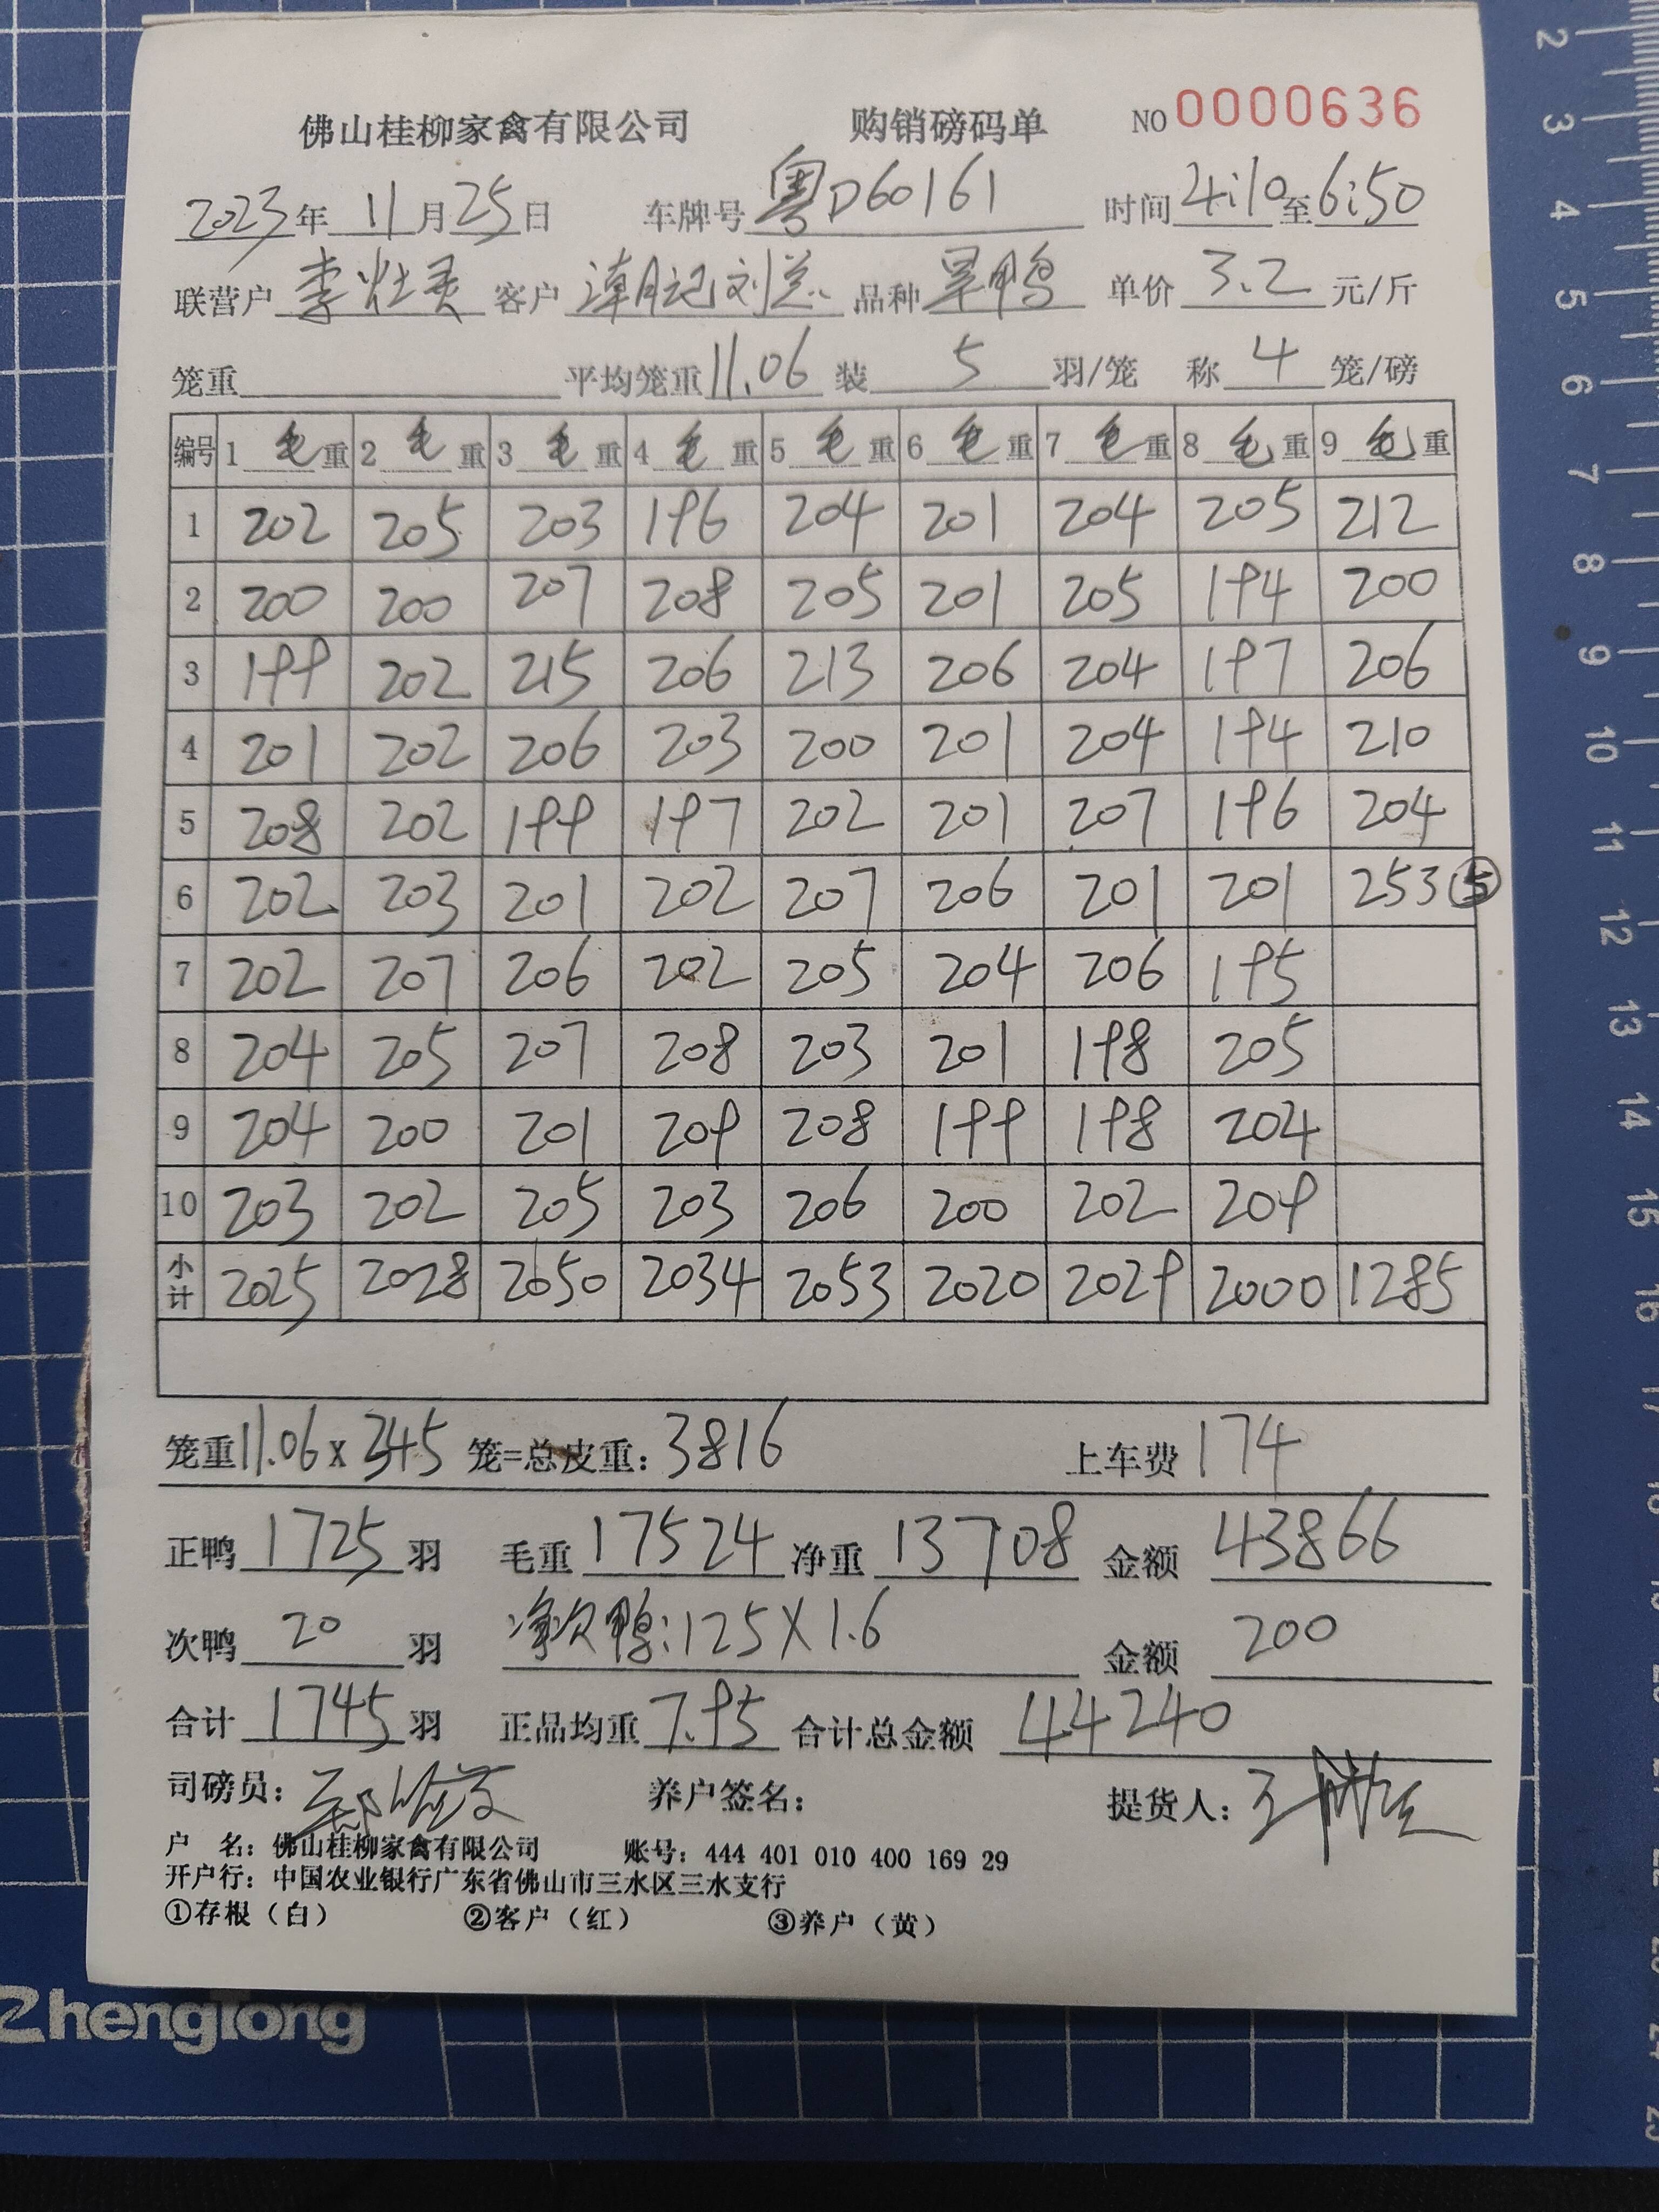 佛山桂柳家禽有限公司 购销磅码单 NO 0000636
2023年 11月25日 车牌号 粤D60161 时间 4:10至6:50
联营户 李灶灵 客户 潮记刘总 品种 旱鸭 单价 3.2 元/斤
笼重 平均笼重 11.06 装 5 羽/笼 称 4 笼/磅
编号 1 毛重 2 毛重 3 毛重 4 毛重 5 毛重 6 毛重 7 毛重 8 毛重 9 毛重
1 202 205 203 196 204 201 204 205 212
2 200 200 207 208 205 201 205 194 200
3 199 202 215 206 213 206 204 197 206
4 201 202 206 203 200 201 204 194 210
5 208 202 199 197 202 201 207 196 204
6 202 203 201 202 207 206 201 201 253 ⑤
7 202 207 206 202 205 204 206 195
8 204 205 207 208 203 201 198 205
9 204 200 201 209 208 199 198 204
10 203 202 205 203 206 200 202 209
小计 2025 2028 2050 2034 2053 2020 2029 2000 1285
笼重 11.06 x 345 笼=总皮重: 3816 上车费 174
正鸭 1725 羽 毛重 17524 净重 13708 金额 43866
次鸭 20 羽 净次鸭:125X1.6 金额 200
合计 1745 羽 正品均重 7.95 合计总金额 44240
司磅员: 养户签名: 提货人:
户 名: 佛山桂柳家禽有限公司 账号: 444 401 010 400 169 29
开户行: 中国农业银行广东省佛山市三水区三水支行
①存根（白） ②客户（红） ③养户（黄）
Zhenglong
2
3
4
5
6
7
8
9
10
11
12
13
14
15
16
17